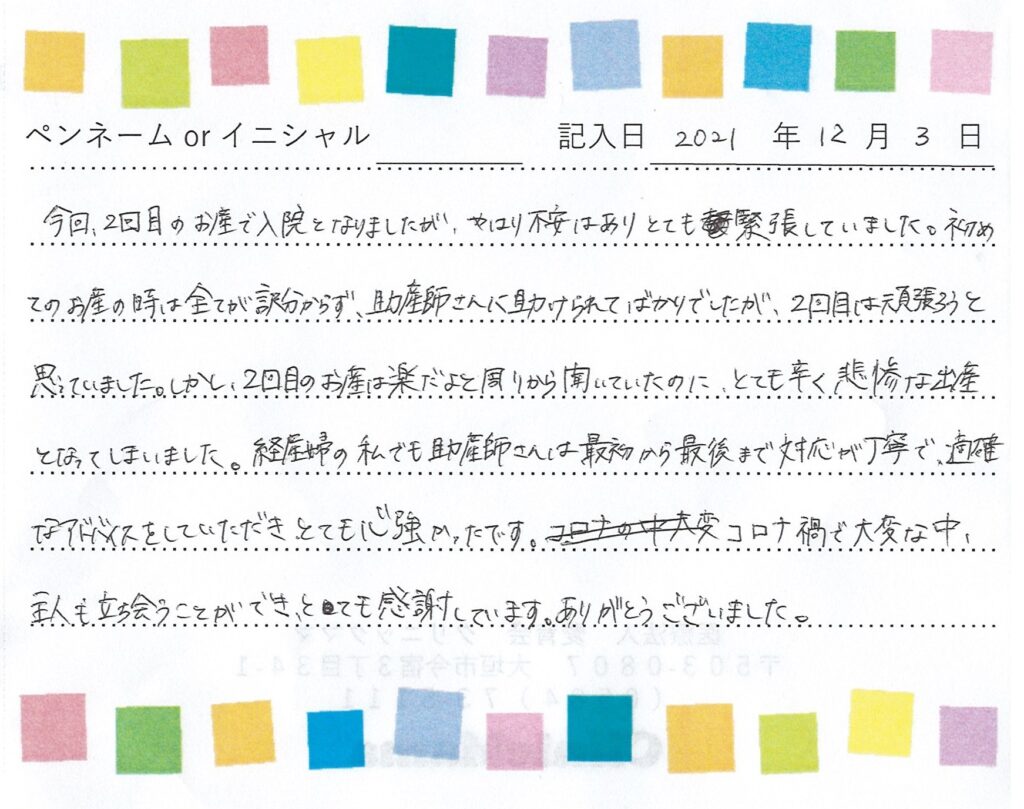 ペンネーム or イニシャル 記入日 2021 年 12 月 3 日
今回、2回目のお産で入院となりましたが、やはり不安はありとても緊張していました。初め
てのお産の時は全てが訳分からず、助産師さんに助けられてばかりでしたが、2回目は頑張ろうと
思っていました。しかし、2回目のお産は楽だよと周りから聞いていたのに、とても辛く悲惨な出産
となってしまいました。経産婦の私でも助産師さんは最初から最後まで対応が丁寧で、適確
なアドバイスをしていただきとても心強かったです。コロナの中大変コロナ禍で大変な中、
主人も立ち会うことができ、とても感謝しています。ありがとうございました。
医療法人 クリニック
〒503-0807 大垣市今宿3丁目34-1